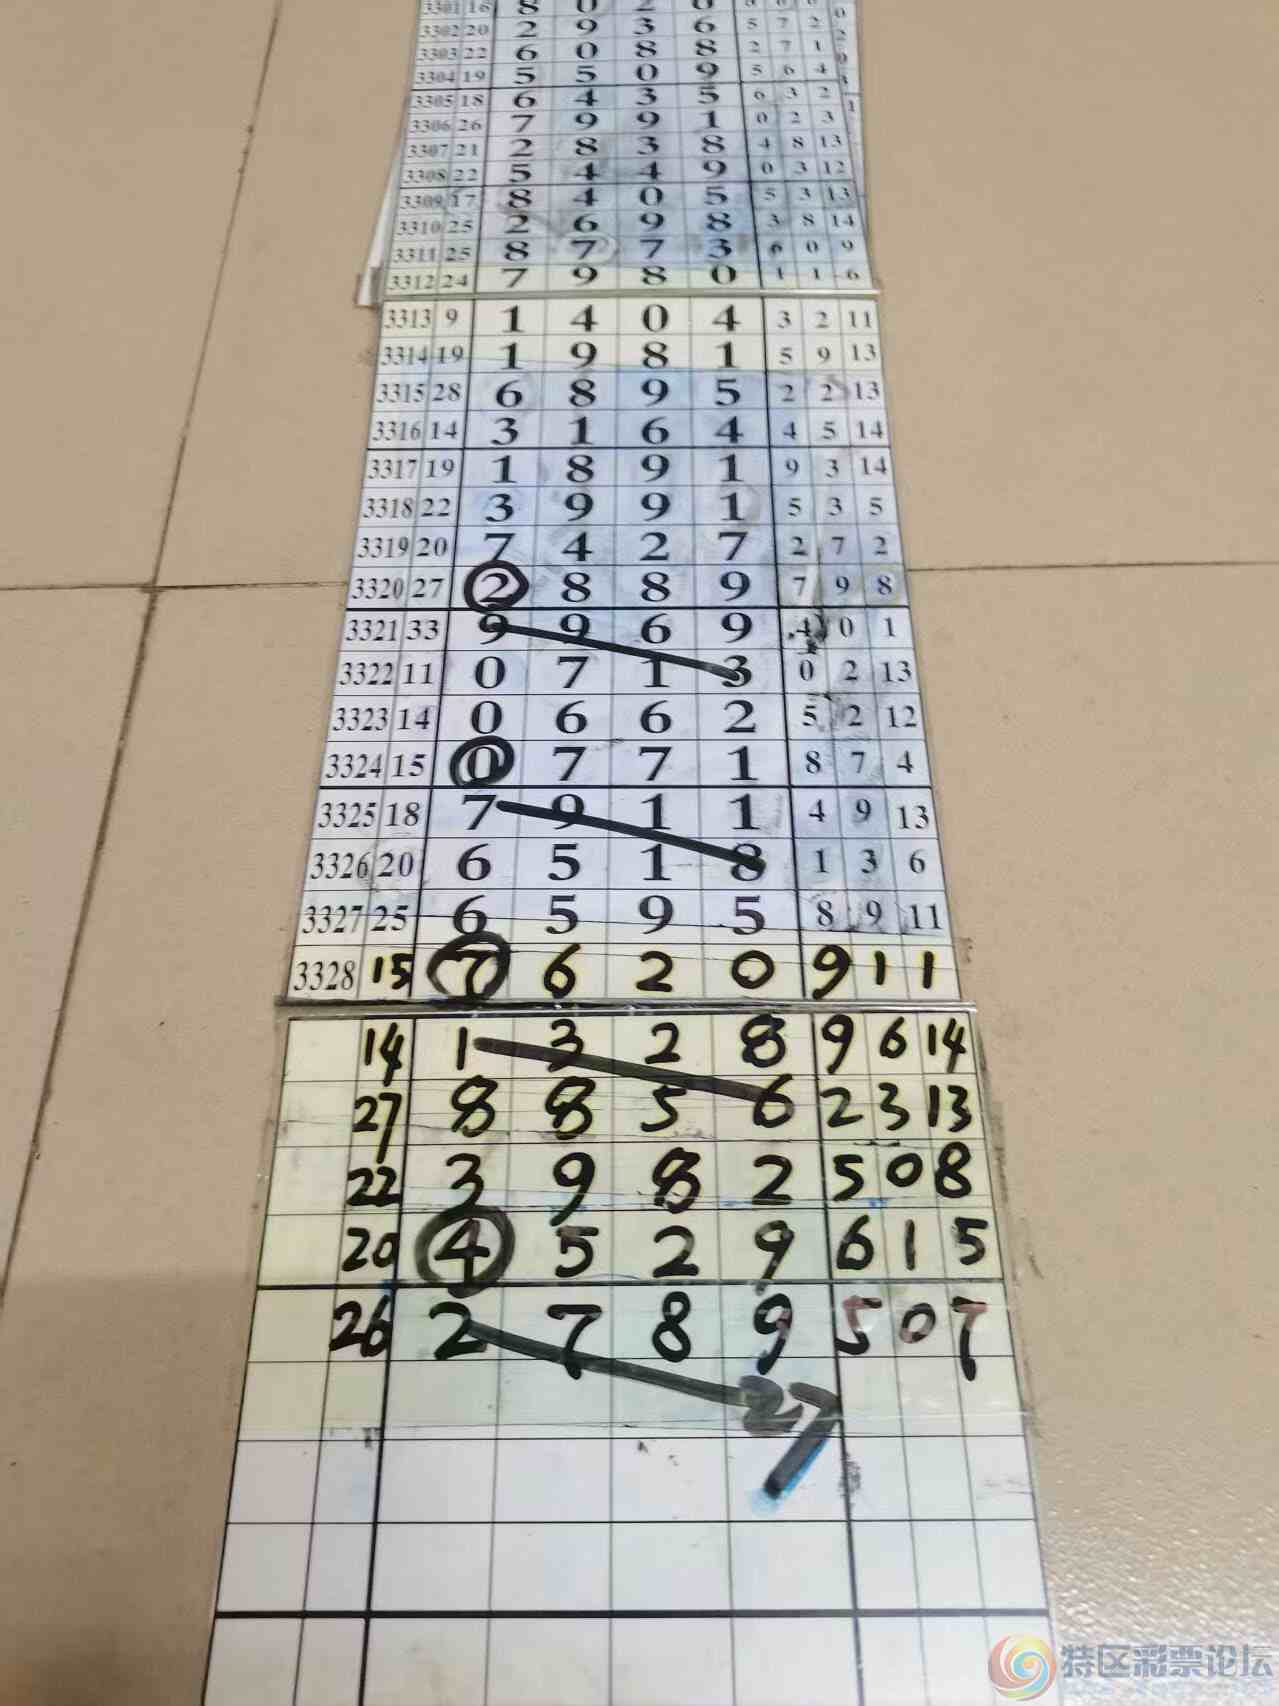 3301 16 8 0 2 6
3302 20 2 9 3 6 5 7 2
3303 22 6 0 8 8 2 7 1
3304 19 5 5 0 9 5 6 4
3305 18 6 4 3 5 6 3 2
3306 26 7 9 9 1 0 2 3
3307 21 2 8 3 8 4 8 13
3308 22 5 4 4 9 0 3 12
3309 17 8 4 0 5 5 3 13
3310 25 2 6 9 8 3 8 14
3311 25 8 7 7 3 6 0 9
3312 24 7 9 8 0 1 1 6
3313 9 1 4 0 4 3 2 11
3314 19 1 9 8 1 5 9 13
3315 28 6 8 9 5 2 2 13
3316 14 3 1 6 4 4 5 14
3317 19 1 8 9 1 9 3 14
3318 22 3 9 9 1 5 3 5
3319 20 7 4 2 7 2 7 2
3320 27 2 8 8 9 7 9 8
3321 33 9 9 6 9 4 0 1
3322 11 0 7 1 3 0 2 13
3323 14 0 6 6 2 5 2 12
3324 15 0 7 7 1 8 7 4
3325 18 7 9 1 1 4 9 13
3326 20 6 5 1 8 1 3 6
3327 25 6 5 9 5 8 9 11
3328 15 7 6 2 0 9 1 1
14 1 3 2 8 9 6 14
27 8 8 5 6 2 3 13
22 3 9 8 2 5 0 8
20 4 5 2 9 6 1 5
26 2 7 8 9 5 0 7
27
特区彩票论坛